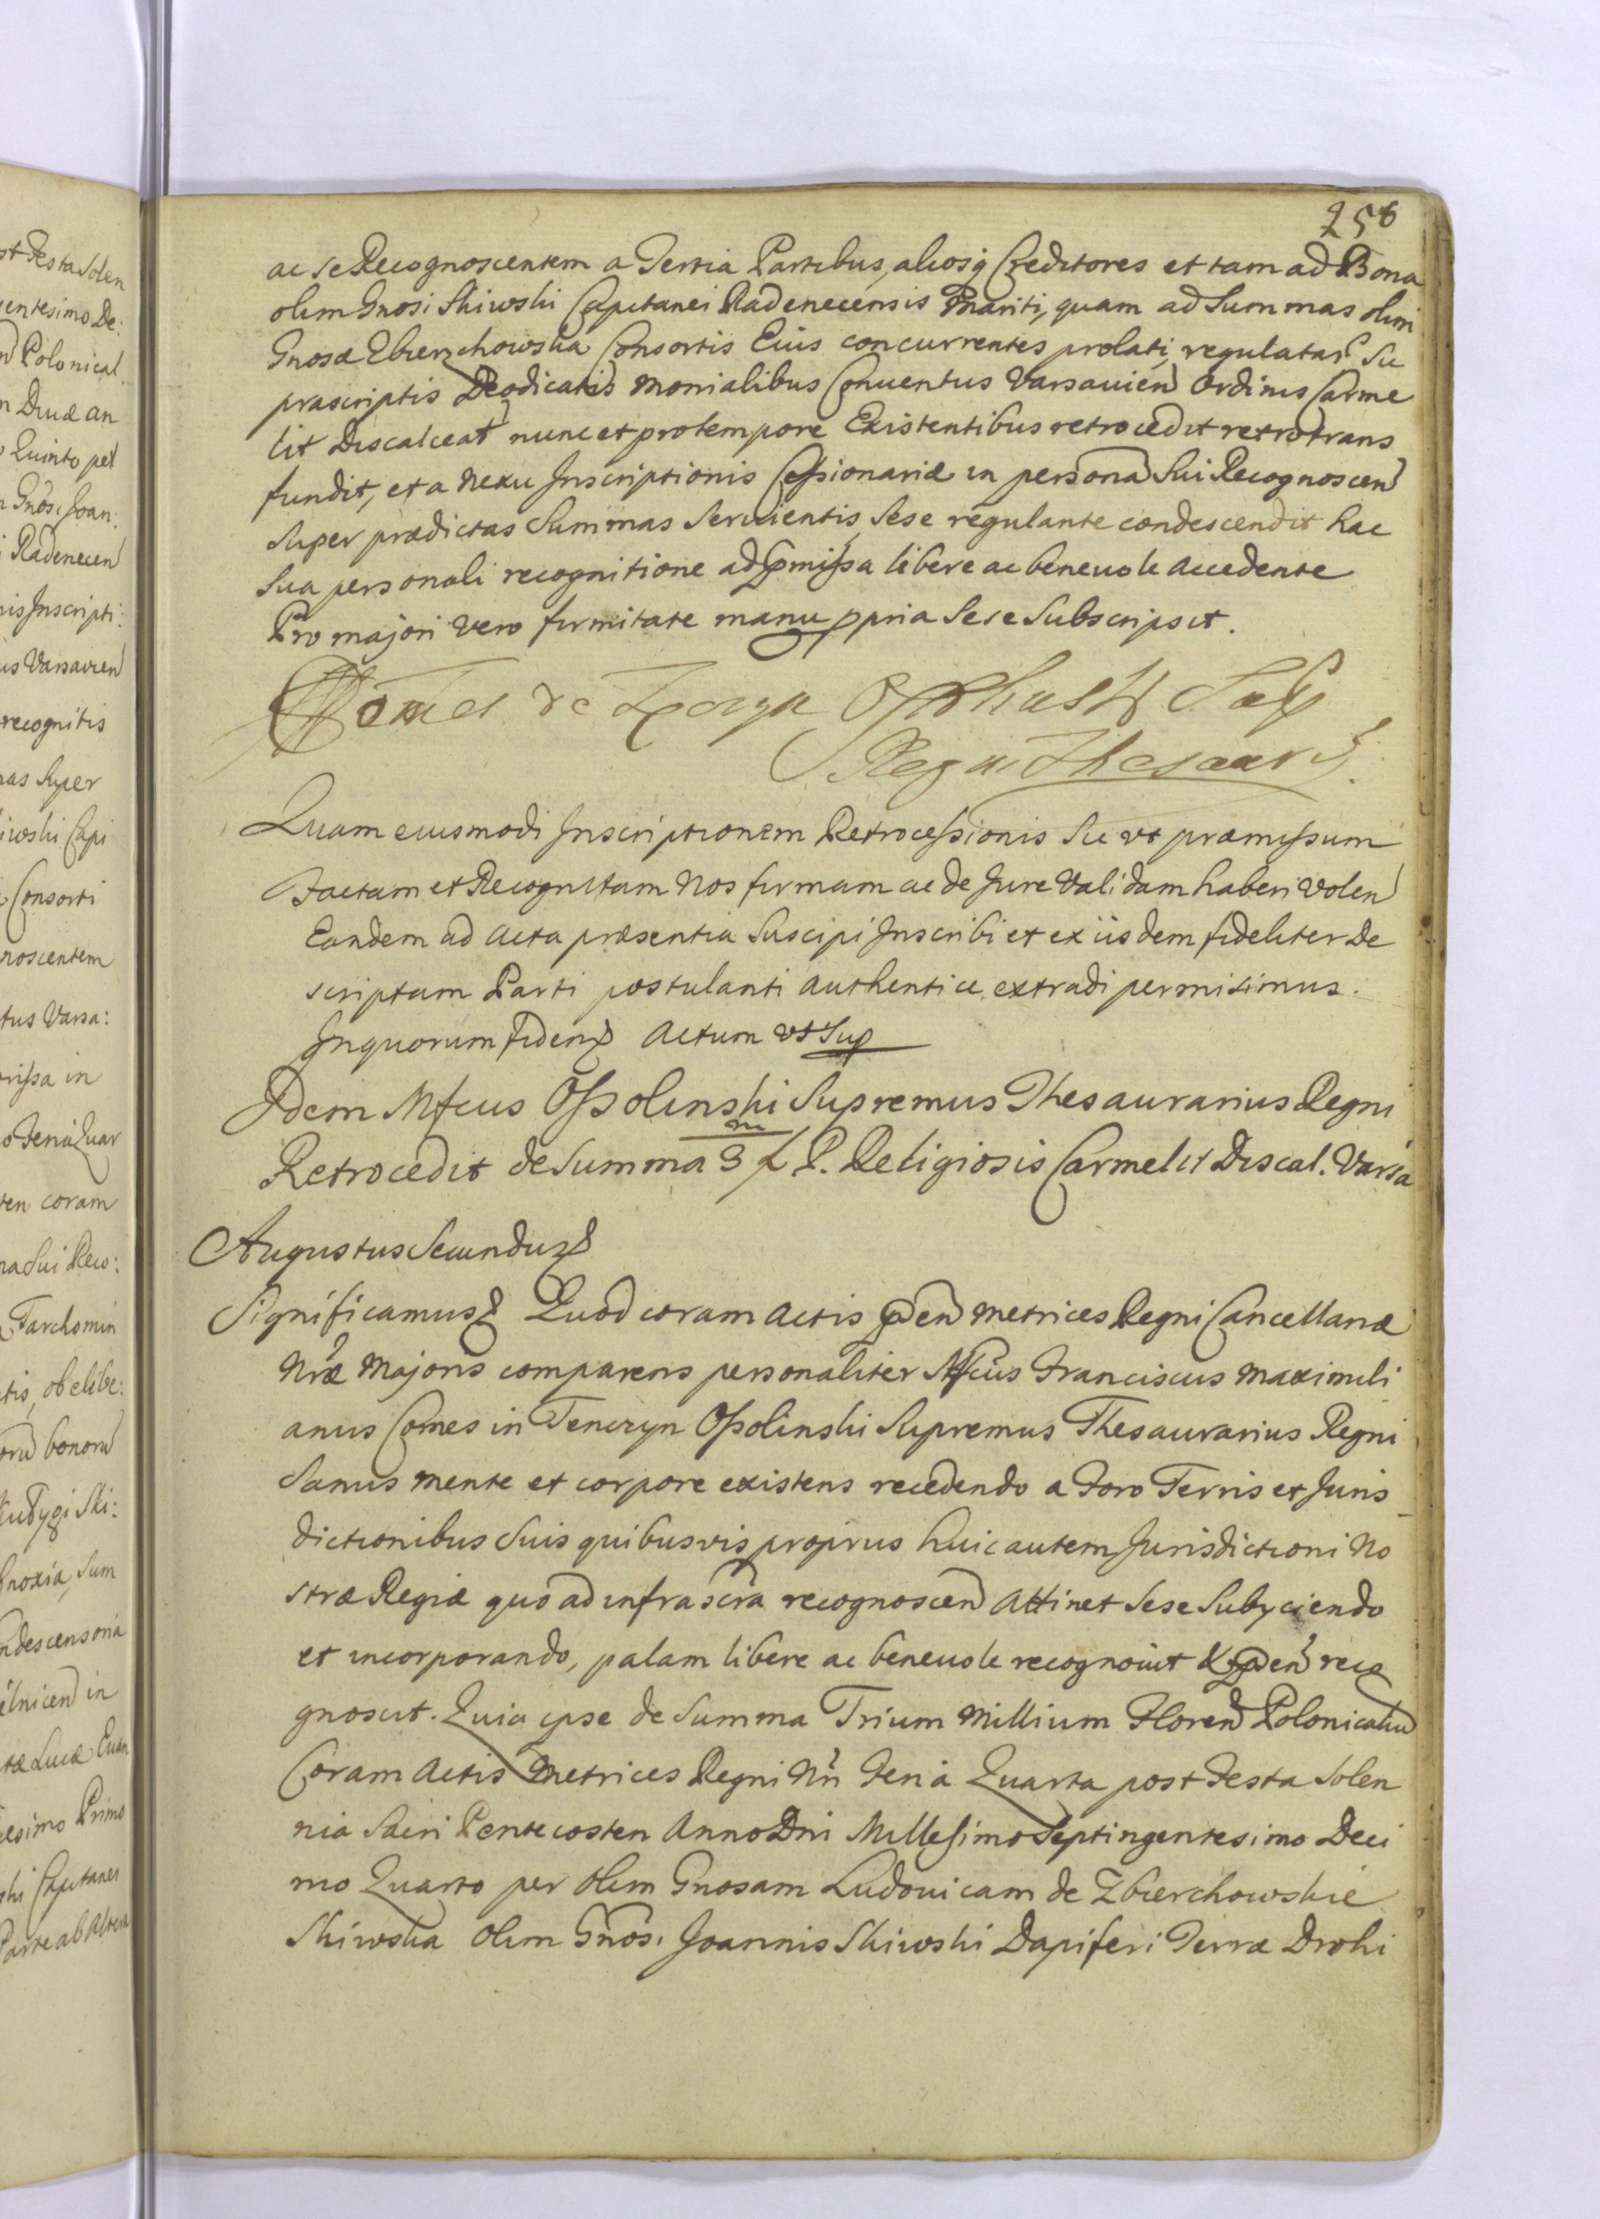 258
ac se Recognoscentem a Tertia Partibus, aliosq Creditores et tam ad Bona
olim Gnosi Skiwski Capitanei Radenecensis Mariti, quam ad Summas olim
Gnosæ Zbierzchowska Consortis Eius concurrentes prolati, regulatar Su
prascriptis Deodicatis Monialibus Conuentus Varsauien Ordinis Carme
lit Discalceat nunc et pro tempore Existentibus retrocedit retrotrans
fundit, et a Nexu Inscriptionis Cessionariæ in persona Sui Recognoscen
super prædictas Summas Seruientis, sese regulante condescendit hac
Sua personali recognitione ad pmissa libere ac beneuole accedente
Pro majori vero firmitate manu ppria Sese Subscripsit.
Comes de
Regni Thesaur
Quam eiusmodi Inscriptionem Retrocessionis Sic vt præmissum
Factam et Recognitam Nos firmam ac de Jure Validam haberi Volen
Eandem ad Acta præsentia Suscipi Inscribi et ex iisdem fideliter De
scriptam Parti postulanti Authentice extradi permisimus.
In quorum fidem Actum vt Sup
Idem Mfcus Ossolinski Supremus Thesaurarius Regni
Retrocedit de Summa 3 m f P. Religiosis Carmelit Discal. Varsa
Augustus Secundus
Significamus Quod coram Actis pden Metrices Regni Cancellariæ
Nræ Majoris comparens personaliter Mfcus Franciscus Maximili
anus Comes in Tenczyn Ossolinski Supremus Thesaurarius Regni
Sanus mente et corpore existens recedendo a Foro Terris et Juris
dictionibus Suis quibusvis proprius huic autem Jurisdictioni No
stræ Regiæ quo ad infra scra recognoscen Attinet Sese Subyciendo
et incorporando, palam libere ac beneuole recognouit & pden reco
gnoscit. Quia ipse de Summa Trium Millium Floren Polonicaliu
Coram Actis Metrices Regni Nri Feria Quarta post Festa Solen
nia Sacri Pentecosten Anno Dni Millesimo Septingentesimo Deci
mo Quarto per Olim Gnosam Ludouicam de Zbierchowskie
Skiwska Olim Gnosi Joannis Skiwski Dapiferi Terræ Drohi